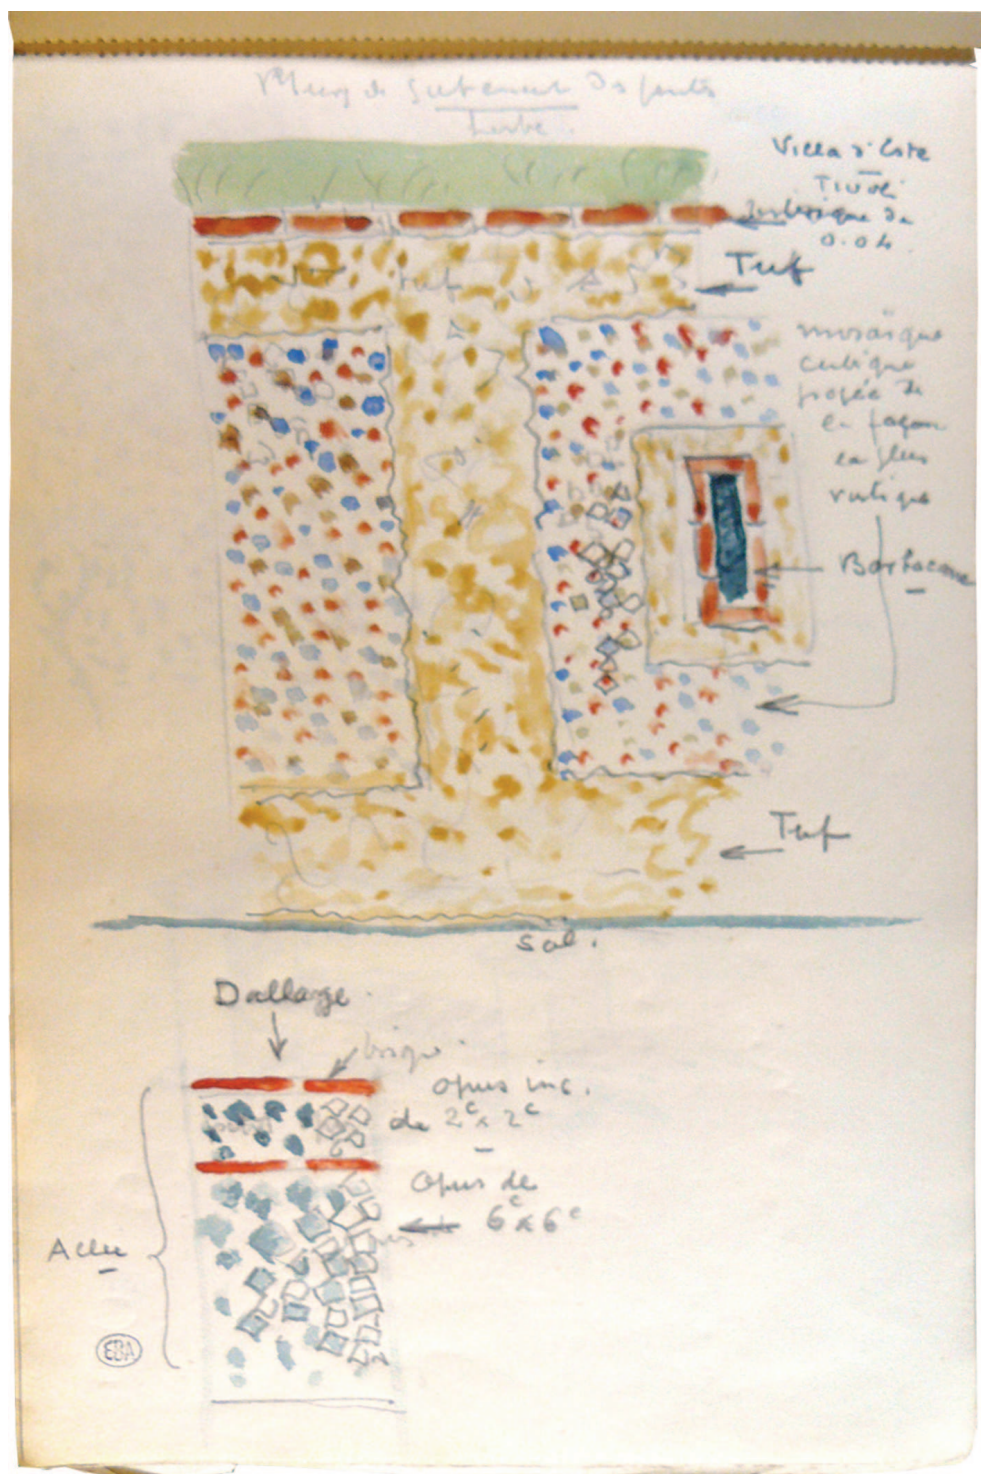 Murs de soutènement des pentes
herbe.
Villa d'Este
Tivoli
brique de
0.04
Tuf
tuf
mosaïque
cubique
posée de
la façon
la plus
rustique
Barbacane
Tuf
Sol.
Dallage.
brique.
opus inc.
de 2c x 2c
Opus de
6c x 6c
Allée
EBA